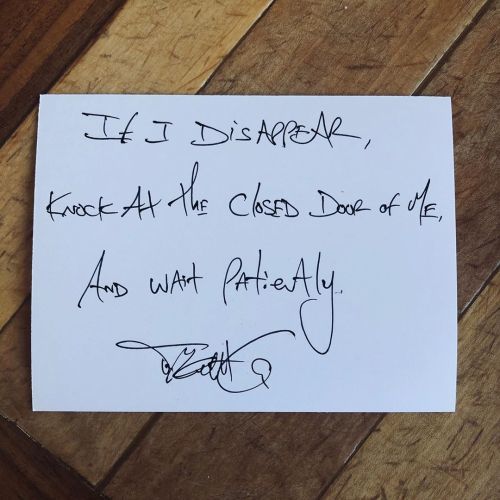 If I DisAPPEAR,
Knock At the Closed Door of Me,
And wait Patiently.